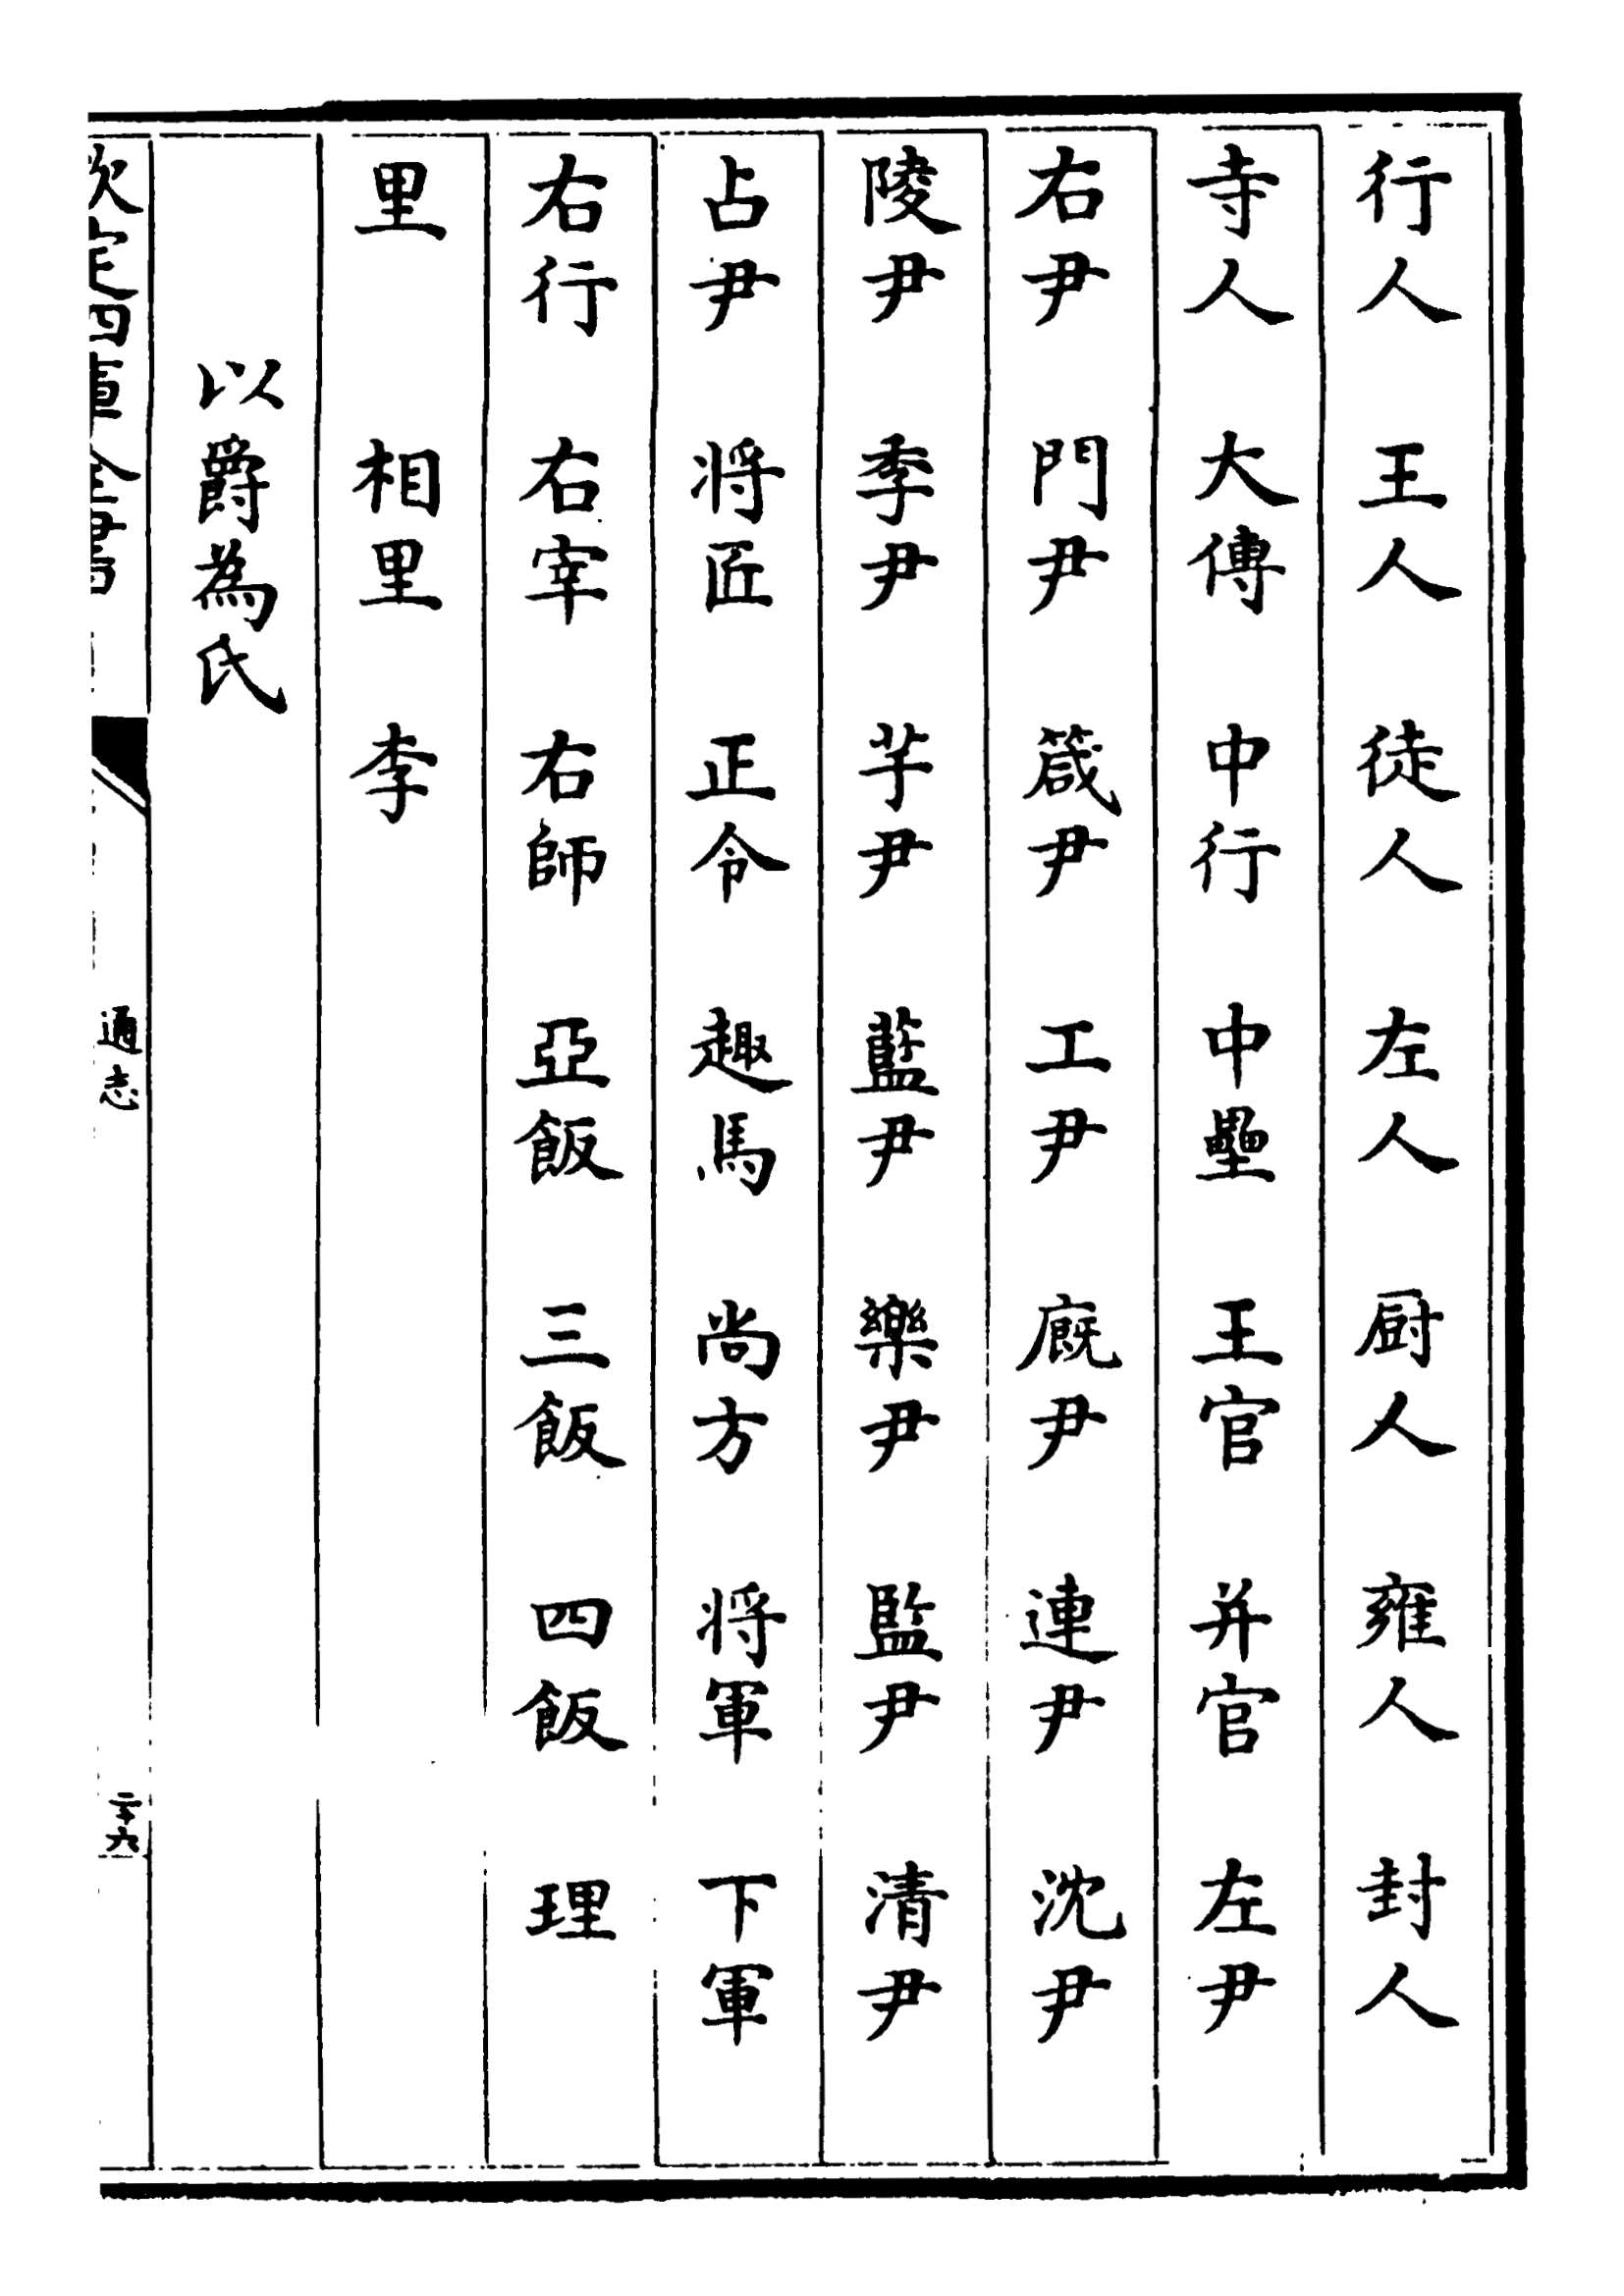 行人 王人 徒人 左人 厨人 雍人 封人
寺人 大傅 中行 中壘 王官 并官 左尹
右尹 門尹 箴尹 工尹 廐尹 連尹 沈尹
陵尹 季尹 芋尹 藍尹 樂尹 監尹 清尹
占尹 将匠 正令 趣馬 尚方 将軍 下軍
右行 右宰 右師 亞飯 三飯 四飯 理
里 相里 李
以爵為氏
欽定四庫全書 通志 二十六